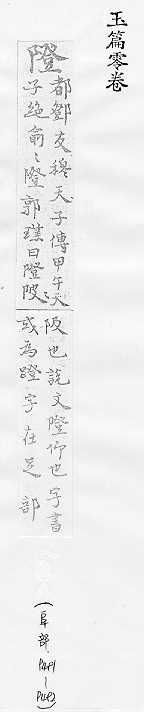 玉篇零卷
隥都鄧反穆天子傳甲午天
子絶俞〻隥郭璞曰隥阪〻
阪也説文隥仰也字書
或為蹬字在足部
(阜部、P491–P492)